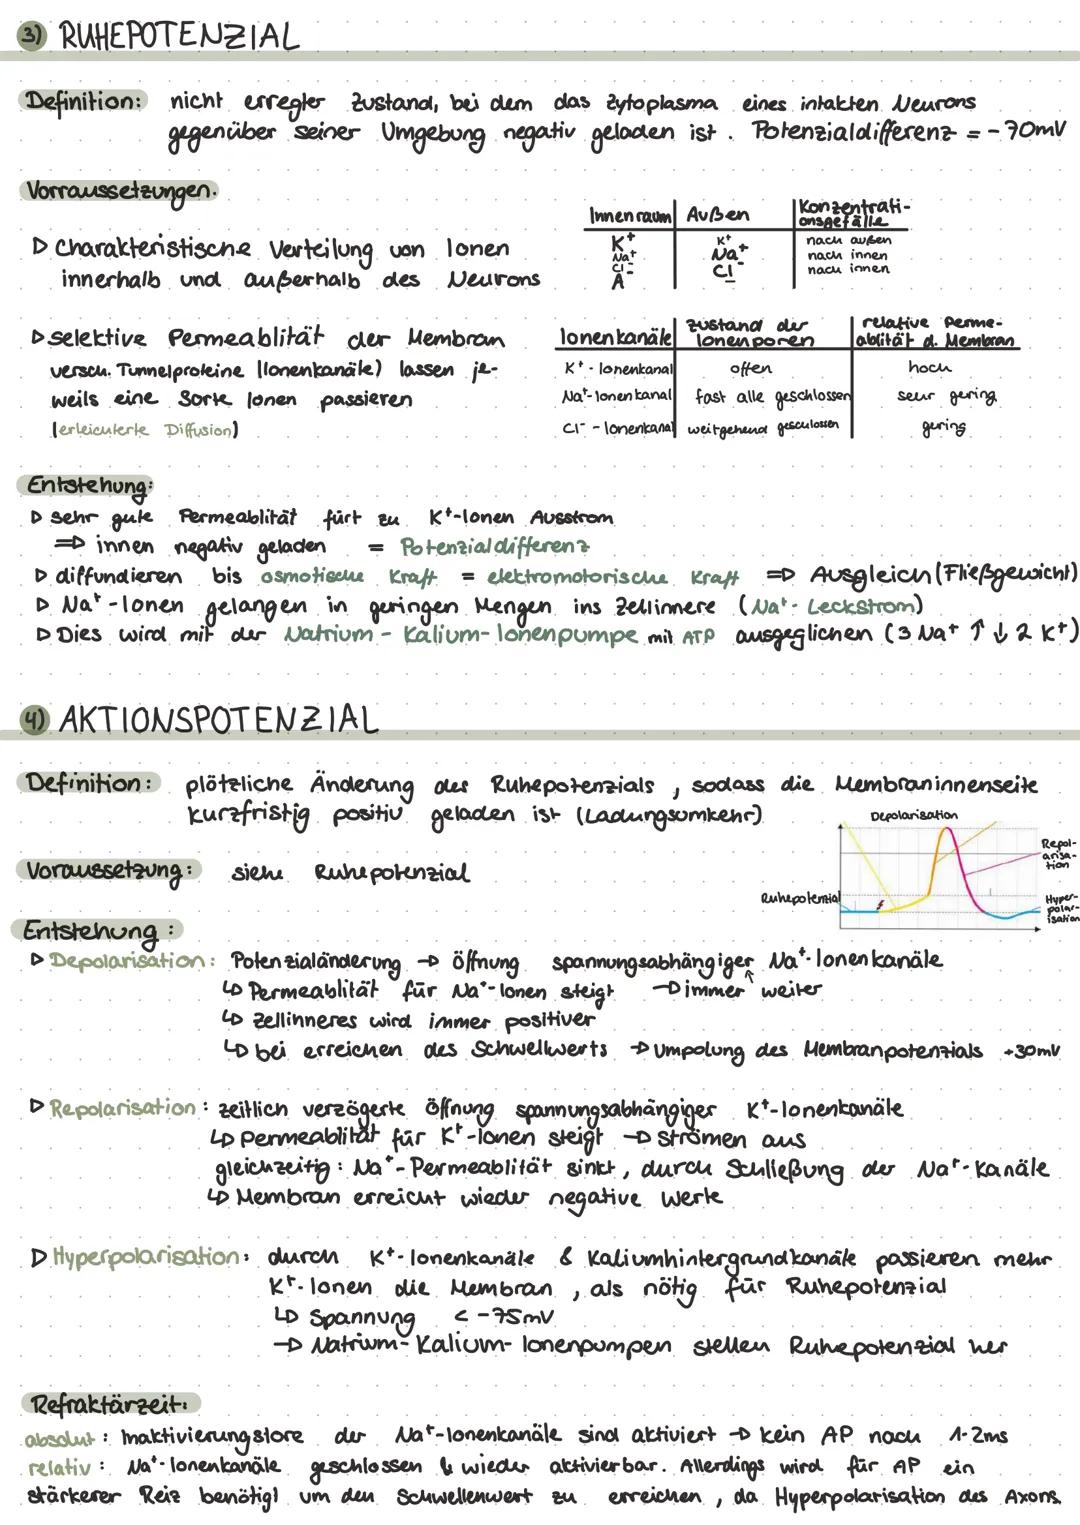 3) RUHEPOTENZIAL
Definition: nicht erregter Zustand, bei dem das Zytoplasma eines intakten Neurons
gegenüber seiner Umgebung negativ geladen ist. Potenzialdifferenz = -70mV
Vorraussetzungen.
▷ Charakteristische Verteilung von Ionen
innerhalb und außerhalb des Neurons
Innenraum | Außen | Konzentrati-
onsgefälle
K⁺ | K⁺ | nach außen
Na⁺ | Na⁺ | nach innen
Cl⁻ | Cl⁻ | nach innen
A⁻ | -
▷ selektive Permeablität der Membran
versch. Tunnelproteine (Ionenkanäle) lassen je-
weils eine Sorte Ionen passieren
(erleichterte Diffusion)
Ionenkanäle | Zustand der Ionenporen | relative Perme-
ablität d. Membran
K⁺ - Ionenkanal | offen | hoch
Na⁺-Ionenkanal | fast alle geschlossen | sehr gering
Cl⁻ - Ionenkanal | weitgehend geschlossen | gering
Entstehung:
▷ sehr gute Permeablität fürt zu K⁺-Ionen Ausstrom
⇒ innen negativ geladen = Potenzialdifferenz
▷ diffundieren bis osmotische Kraft = elektromotorische Kraft ⇒ Ausgleich (Fließgewicht)
▷ Na⁺-Ionen gelangen in geringen Mengen ins Zellinnere (Na⁺- Leckstrom)
▷ Dies wird mit der Natrium - Kalium- Ionenpumpe mit ATP ausgeglichen (3 Na⁺ ↑ ↓ 2 K⁺)
4) AKTIONSPOTENZIAL
Definition: plötzliche Änderung des Ruhepotenzials, sodass die Membraninnenseite
kurzfristig positiv geladen ist (Ladungsumkehr)
Depolarisation
Repol-
arisa-
tion
Ruhepotenzial
Hyper-
polar-
isation
Voraussetzung: siehe Ruhepotenzial
Entstehung:
▷ Depolarisation: Potenzialänderung → Öffnung spannungsabhängiger Na⁺-Ionenkanäle
↳ Permeablität für Na⁺-Ionen steigt → immer weiter
↳ Zellinneres wird immer positiver
↳ bei erreichen des Schwellwerts → Umpolung des Membranpotenzials +30mV
▷ Repolarisation: zeitlich verzögerte Öffnung spannungsabhängiger K⁺-Ionenkanäle
↳ permeablität für K⁺-Ionen steigt → strömen aus
gleichzeitig: Na⁺- Permeablität sinkt, durch Schließung der Na⁺-Kanäle
↳ Membran erreicht wieder negative Werte
▷ Hyperpolarisation: durch K⁺-Ionenkanäle & Kaliumhintergrundkanäle passieren mehr
K⁺-Ionen die Membran, als nötig für Ruhepotenzial
↳ Spannung < -75mV
→ Natrium- Kalium- Ionenpumpen stellen Ruhepotenzial her
Refraktärzeit:
absolut: Inaktivierungstore der Na⁺-Ionenkanäle sind aktiviert → kein AP nach 1-2ms
relativ: Na⁺-Ionenkanäle geschlossen & wieder aktivierbar. Allerdings wird für AP ein
stärkerer Reiz benötigt um den Schwellenwert zu erreichen, da Hyperpolarisation des Axons.